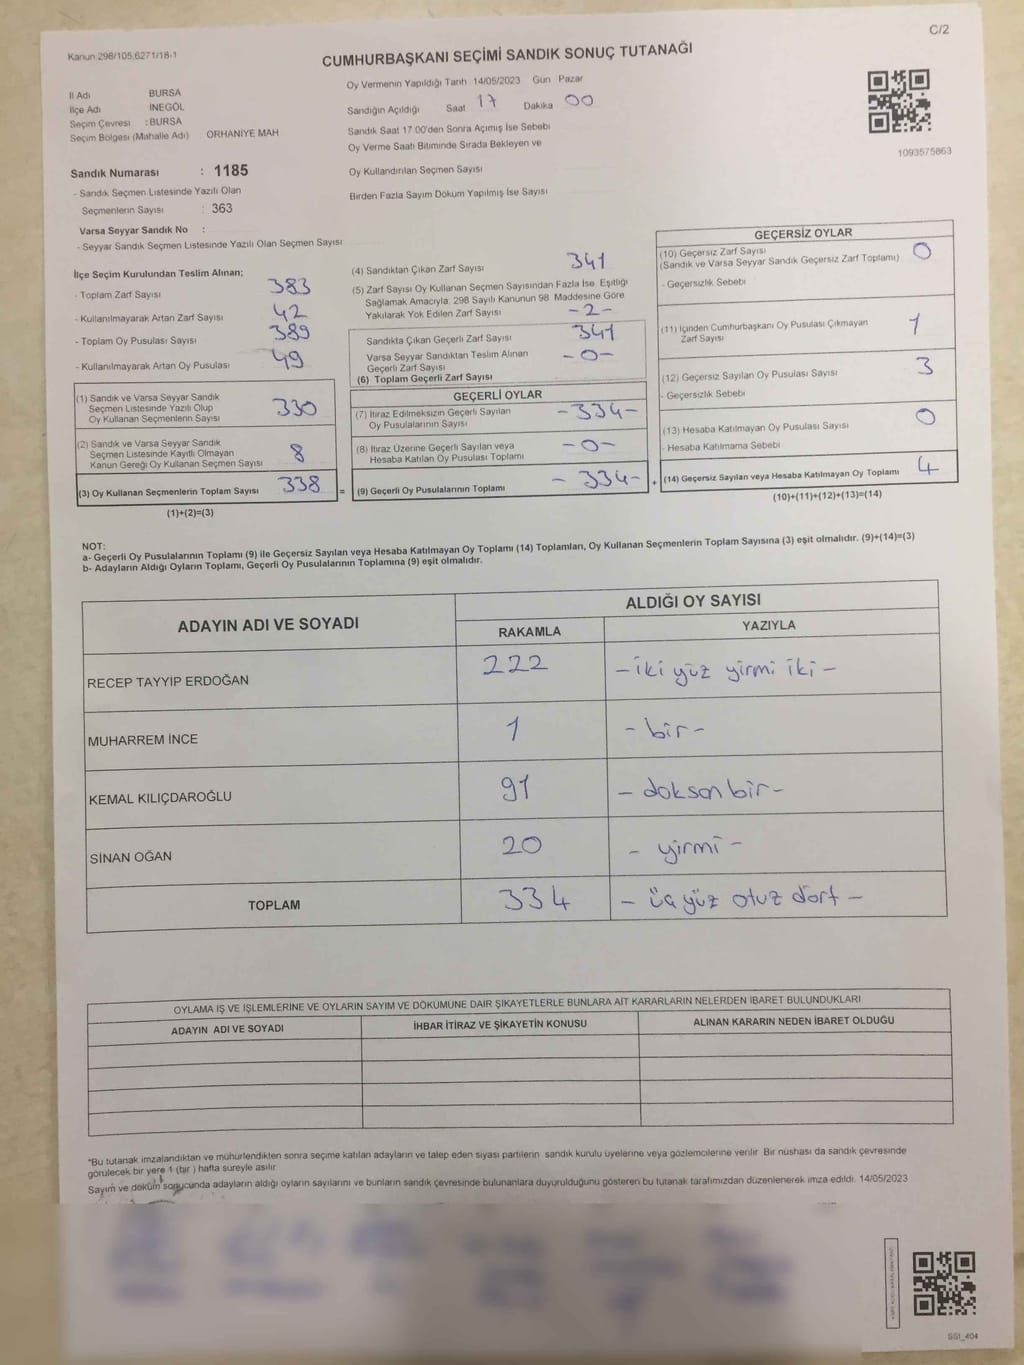 C/2
Kanun 298/105,6271/18-1
CUMHURBAŞKANI SEÇİMİ SANDIK SONUÇ TUTANAĞI
İl Adı BURSA
İlçe Adı İNEGÖL
Seçim Çevresi : BURSA
Seçim Bölgesi (Mahalle Adı) ORHANİYE MAH
Oy Vermenin Yapıldığı Tarih 14/05/2023 Gün Pazar
Sandığın Açıldığı Saat 17 Dakika 00
Sandık Saat 17 00'den Sonra Açımış İse Sebebi
Oy Verme Saati Bitiminde Sırada Bekleyen ve
Oy Kullandırılan Seçmen Sayısı
Birden Fazla Sayım Döküm Yapılmış İse Sayısı
1093575863
Sandık Numarası : 1185
- Sandık Seçmen Listesinde Yazılı Olan
Seçmenlerin Sayısı : 363
Varsa Seyyar Sandık No :
- Seyyar Sandık Seçmen Listesinde Yazılı Olan Seçmen Sayısı
İlçe Seçim Kurulundan Teslim Alınan;
- Toplam Zarf Sayısı 383
- Kullanılmayarak Artan Zarf Sayısı 42
- Toplam Oy Pusulası Sayısı 389
- Kullanılmayarak Artan Oy Pusulası 49
(1) Sandık ve Varsa Seyyar Sandık
Seçmen Listesinde Yazılı Olup
Oy Kullanan Seçmenlerin Sayısı 330
(2) Sandık ve Varsa Seyyar Sandık
Seçmen Listesinde Kayıtlı Olmayan
Kanun Gereği Oy Kullanan Seçmen Sayısı 8
(3) Oy Kullanan Seçmenlerin Toplam Sayısı 338
(1)+(2)=(3)
(4) Sandıktan Çıkan Zarf Sayısı 341
(5) Zarf Sayısı Oy Kullanan Seçmen Sayısından Fazla İse Eşitliği
Sağlamak Amacıyla 298 Sayılı Kanunun 98 Maddesine Göre
Yakılarak Yok Edilen Zarf Sayısı -2-
Sandıkta Çıkan Geçerli Zarf Sayısı 341
Varsa Seyyar Sandıktan Teslim Alınan
Geçerli Zarf Sayısı -0-
(6) Toplam Geçerli Zarf Sayısı
GEÇERLİ OYLAR
(7) İtiraz Edilmeksizin Geçerli Sayılan
Oy Pusulalarının Sayısı -334-
(8) İtiraz Üzerine Geçerli Sayılan veya
Hesaba Katılan Oy Pusulası Toplamı -0-
= (9) Geçerli Oy Pusulalarının Toplamı -334-
GEÇERSİZ OYLAR
(10) Geçersiz Zarf Sayısı
(Sandık ve Varsa Seyyar Sandık Geçersiz Zarf Toplamı) 0
- Geçersizlik Sebebi
(11) İçinden Cumhurbaşkanı Oy Pusulası Çıkmayan
Zarf Sayısı 1
(12) Geçersiz Sayılan Oy Pusulası Sayısı 3
- Geçersizlik Sebebi
(13) Hesaba Katılmayan Oy Pusulası Sayısı 0
- Hesaba Katılmama Sebebi
+ (14) Geçersiz Sayılan veya Hesaba Katılmayan Oy Toplamı 4
(10)+(11)+(12)+(13)=(14)
NOT:
a- Geçerli Oy Pusulalarının Toplamı (9) ile Geçersiz Sayılan veya Hesaba Katılmayan Oy Toplamı (14) Toplamları, Oy Kullanan Seçmenlerin Toplam Sayısına (3) eşit olmalıdır. (9)+(14)=(3)
b- Adayların Aldığı Oyların Toplamı, Geçerli Oy Pusulalarının Toplamına (9) eşit olmalıdır.
ADAYIN ADI VE SOYADI
ALDIĞI OY SAYISI
RAKAMLA YAZIYLA
RECEP TAYYİP ERDOĞAN 222 -iki yüz yirmi iki-
MUHARREM İNCE 1 -bir-
KEMAL KILIÇDAROĞLU 91 -doksan bir-
SİNAN OĞAN 20 -yirmi-
TOPLAM 334 -üç yüz otuz dört-
OYLAMA İŞ VE İŞLEMLERİNE VE OYLARIN SAYIM VE DÖKÜMÜNE DAİR ŞİKAYETLERLE BUNLARA AİT KARARLARIN NELERDEN İBARET BULUNDUKLARI
ADAYIN ADI VE SOYADI İHBAR İTİRAZ VE ŞİKAYETİN KONUSU ALINAN KARARIN NEDEN İBARET OLDUĞU
*Bu tutanak imzalandıktan ve mühürlendikten sonra seçime katılan adayların ve talep eden siyasi partilerin sandık kurulu üyelerine veya gözlemcilerine verilir Bir nüshası da sandık çevresinde
görülecek bir yere 1 (bir ) hafta süreyle asılır
Sayım ve döküm sonucunda adayların aldığı oyların sayılarını ve bunların sandık çevresinde bulunanlara duyurulduğunu gösteren bu tutanak tarafımızdan düzenlenerek imza edildi. 14/05/2023
SSI_404